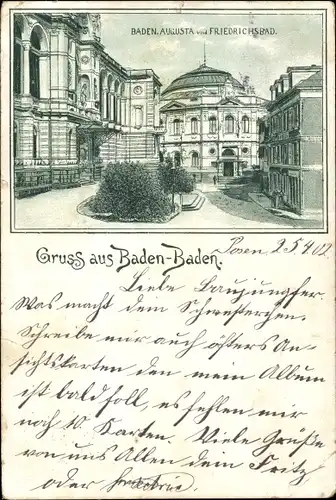 BADEN. AUGUSTA und FRIEDRICHSBAD.
Gruss aus Baden-Baden.
Posen, 25 4 02
Liebe Banjungfer
Was macht dein Schwesterchen.
Schreibe mir auch öfters An-
sichtskarten den mein Album
ist bald foll, es fehlen mir
noch 10. Karten. Viele Grüße
von uns Allen dein Fritz
oder